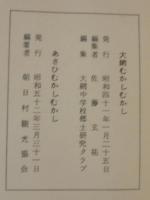 大網むかしむかし
発行 昭和四十一年一月二十五日
編著者 佐藤玄祐
編集 大網中学校郷土研究クラブ
あさひむかしむかし
発行 昭和五十二年三月三十一日
編著者 朝日村観光協会